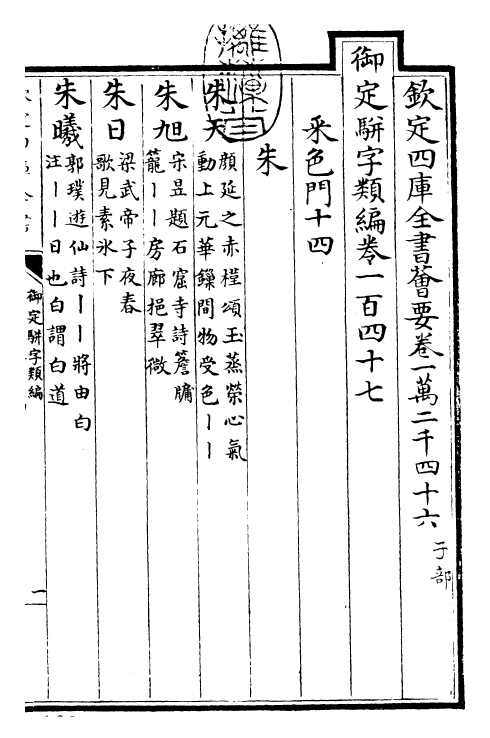 欽定四庫全書薈要卷一萬二千四十六 子部
御定駢字類編卷一百四十七
采色門十四
朱
朱天 顔延之赤槿頌玉蒸榮心氣
動上元華鏁間物受色丨丨
朱旭 宋昱題石窟寺詩簷牖
籠丨丨房廊挹翠微
朱日 梁武帝子夜春
歌見素氷下
朱曦 郭璞遊仙詩丨丨將由白
注丨丨日也白謂白道
御定駢字類編
一